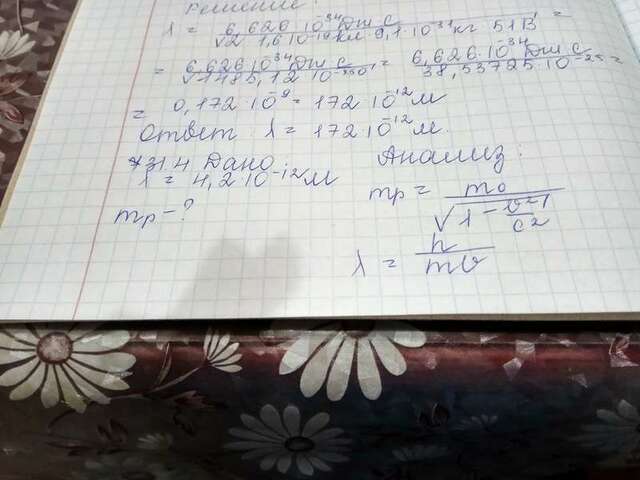 Решение:
λ = 6,620 · 10^34 Дж с / √2 · 1,6 · 10^-19 Кл · 9,1 · 10^-31 кг · 51 В =
= 6,626 · 10^34 Дж с / √1485,12 · 10^-250 = 6,626 · 10^34 Дж с / 38,53725 · 10^-25 =
= 0,172 · 10^-9 = 172 · 10^-12 м
Ответ λ = 172 · 10^-12 м.
*31.4 Дано:
λ = 4,2 · 10^-12 м
mр - ?
Анализ:
mр = m₀ / √1 - υ² / c²
λ = h / mυ